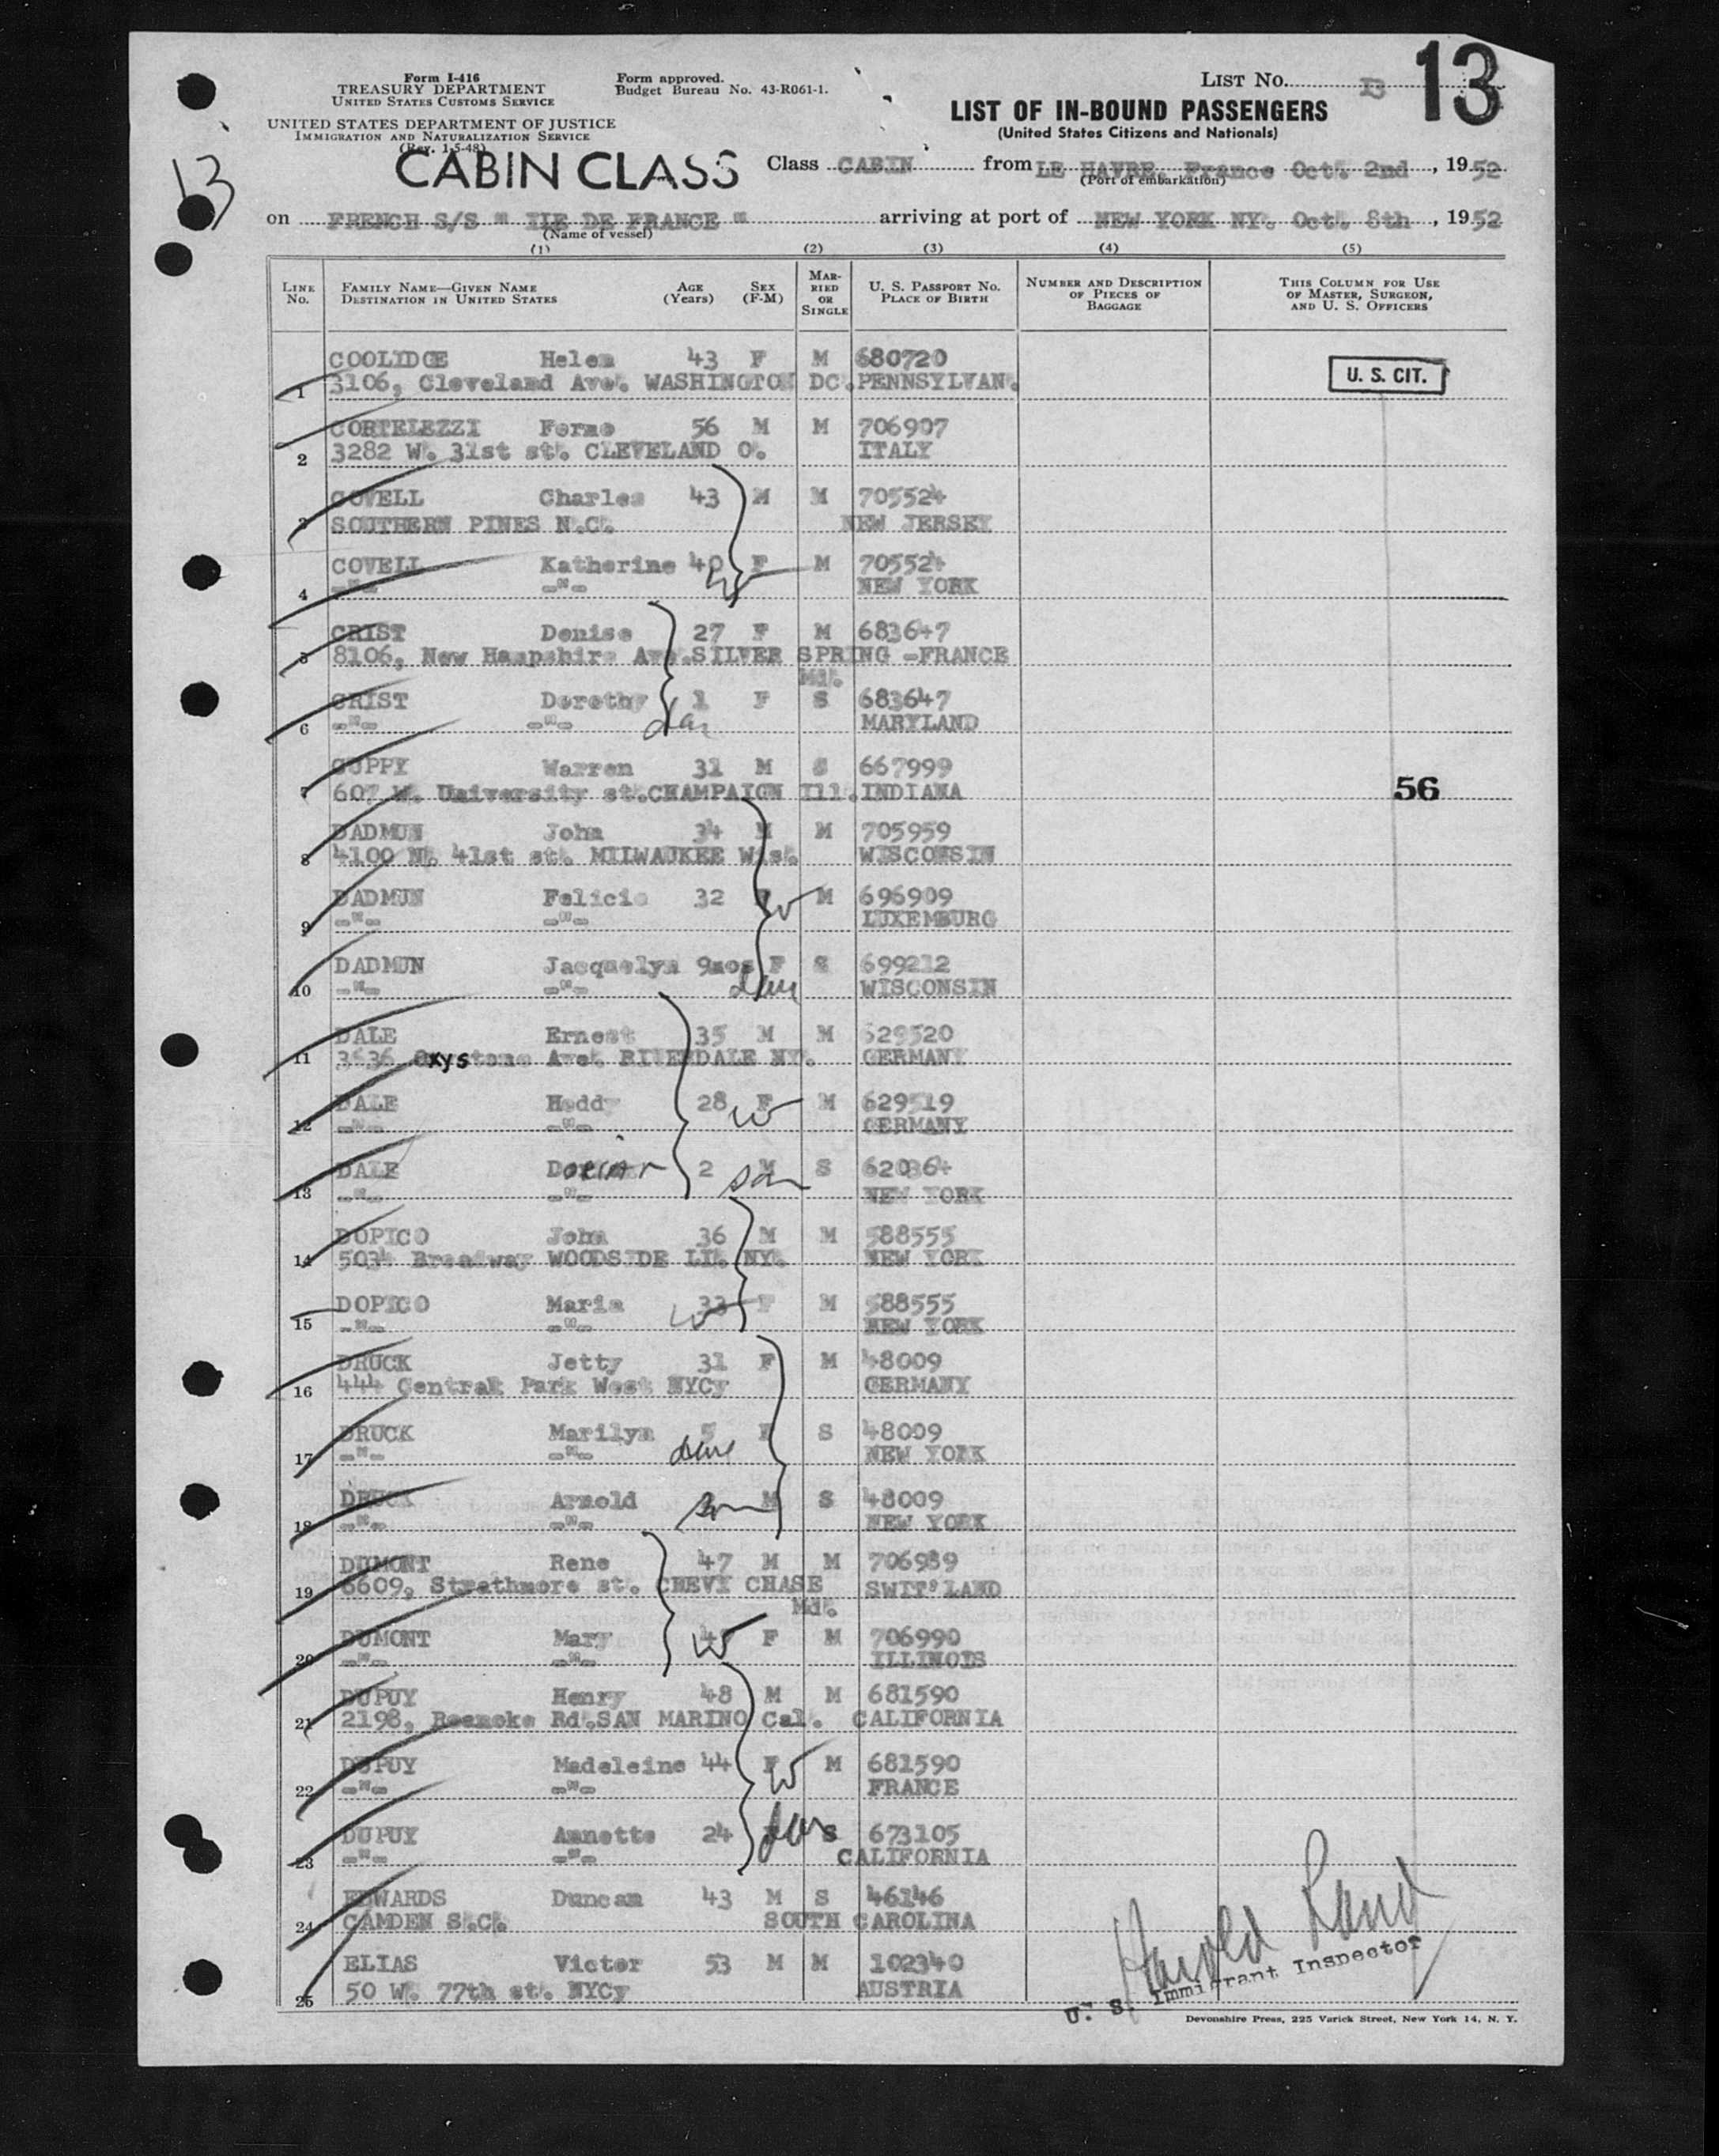 Form I-416
TREASURY DEPARTMENT
UNITED STATES CUSTOMS SERVICE
Form approved.
Budget Bureau No. 43-R061-1.
LIST No. 13
UNITED STATES DEPARTMENT OF JUSTICE
IMMIGRATION AND NATURALIZATION SERVICE
(Rev. 1-5-48)
LIST OF IN-BOUND PASSENGERS
(United States Citizens and Nationals)
13
CABIN CLASS
Class CABIN from LE HAVRE, France Oct. 2nd, 1952
(Port of embarkation)
on FRENCH S/S " ILE DE FRANCE " arriving at port of NEW YORK NY. Oct. 8th, 1952
(Name of vessel)
(1) (2) (3) (4) (5)
LINE No. FAMILY NAME—GIVEN NAME DESTINATION IN UNITED STATES AGE (Years) SEX (F-M) MARRIED OR SINGLE U. S. PASSPORT No. PLACE OF BIRTH NUMBER AND DESCRIPTION OF PIECES OF BAGGAGE THIS COLUMN FOR USE OF MASTER, SURGEON, AND U. S. OFFICERS
COOLIDGE Helen 43 F M 680720
1 3106, Cleveland Ave. WASHINGTON DC. PENNSYLVAN. U. S. CIT.
CORTELEZZI Fermo 56 M M 706907
2 3282 W. 31st st. CLEVELAND O. ITALY
COVELL Charles 43 M M 705524
3 SOUTHERN PINES N.C. NEW JERSEY
COVELL Katherine 40 F M 705524
4 -"- -"- w NEW YORK
CRIST Denise 27 F M 683647
5 8106, New Hampshire Ave. SILVER SPRING -FRANCE
Md.
CRIST Dorothy 1 F S 683647
6 -"- -"- dau MARYLAND
CUPPY Warren 31 M S 667999
7 607 W. University st. CHAMPAIGN Ill. INDIANA 56
DADMUN John 34 M M 705959
8 4100 N. 41st st. MILWAUKEE Wis. WISCONSIN
DADMUN Felicie 32 w M 696909
9 -"- -"- LUXEMBURG
DADMUN Jacquelyn 9mos F S 699212
10 -"- -"- dau WISCONSIN
DALE Ernest 35 M M 629520
11 3636 Oxystone Ave. RIVERDALE NY. GERMANY
DALE Heddy 28 F w M 629519
12 -"- -"- GERMANY
DALE 2 M son S 620364
13 -"- -"- NEW YORK
DOPICO John 36 M M 588555
14 5034 Broadway WOODSIDE LI. NY. NEW YORK
DOPICO Maria 33 F w M 588555
15 -"- -"- NEW YORK
DRUCK Jetty 31 F M 48009
16 444 Central Park West NYCy GERMANY
DRUCK Marilyn 5 F S 48009
17 -"- -"- dau NEW YORK
DRUCK Arnold son M S 48009
18 -"- -"- NEW YORK
DUMONT Rene 47 M M 706989
19 6609, Strathmore st. CHEVY CHASE SWIT'LAND
Md.
DUMONT Mary w F M 706990
20 -"- -"- ILLINOIS
DUPUY Henry 48 M M 681590
21 2198, Roanoke Rd. SAN MARINO Cal. CALIFORNIA
DUPUY Madeleine 44 F w M 681590
22 -"- -"- FRANCE
DUPUY Annette 24 dau S 673105
23 -"- -"- CALIFORNIA
EDWARDS Duncan 43 M S 46146
24 CAMDEN S.C. SOUTH CAROLINA
ELIAS Victor 53 M M 102340
25 50 W. 77th st. NYCy AUSTRIA
Harold Land
U. S. Immigrant Inspector
Devonshire Press, 225 Varick Street, New York 14, N. Y.